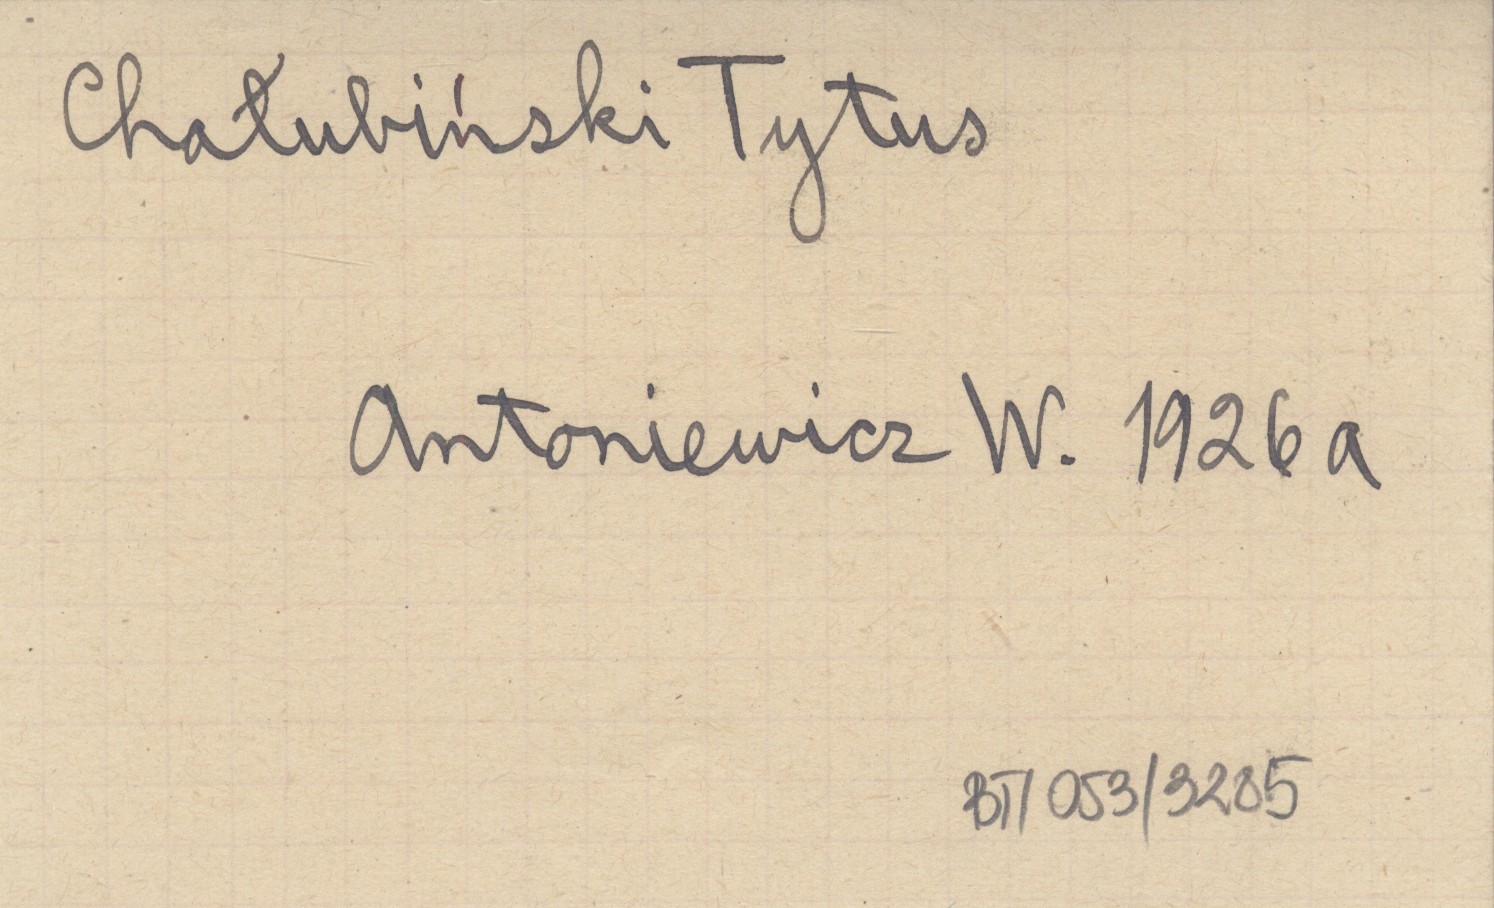 Chałubiński Tytus
Antoniewicz W. 1926a
BT/053/3285